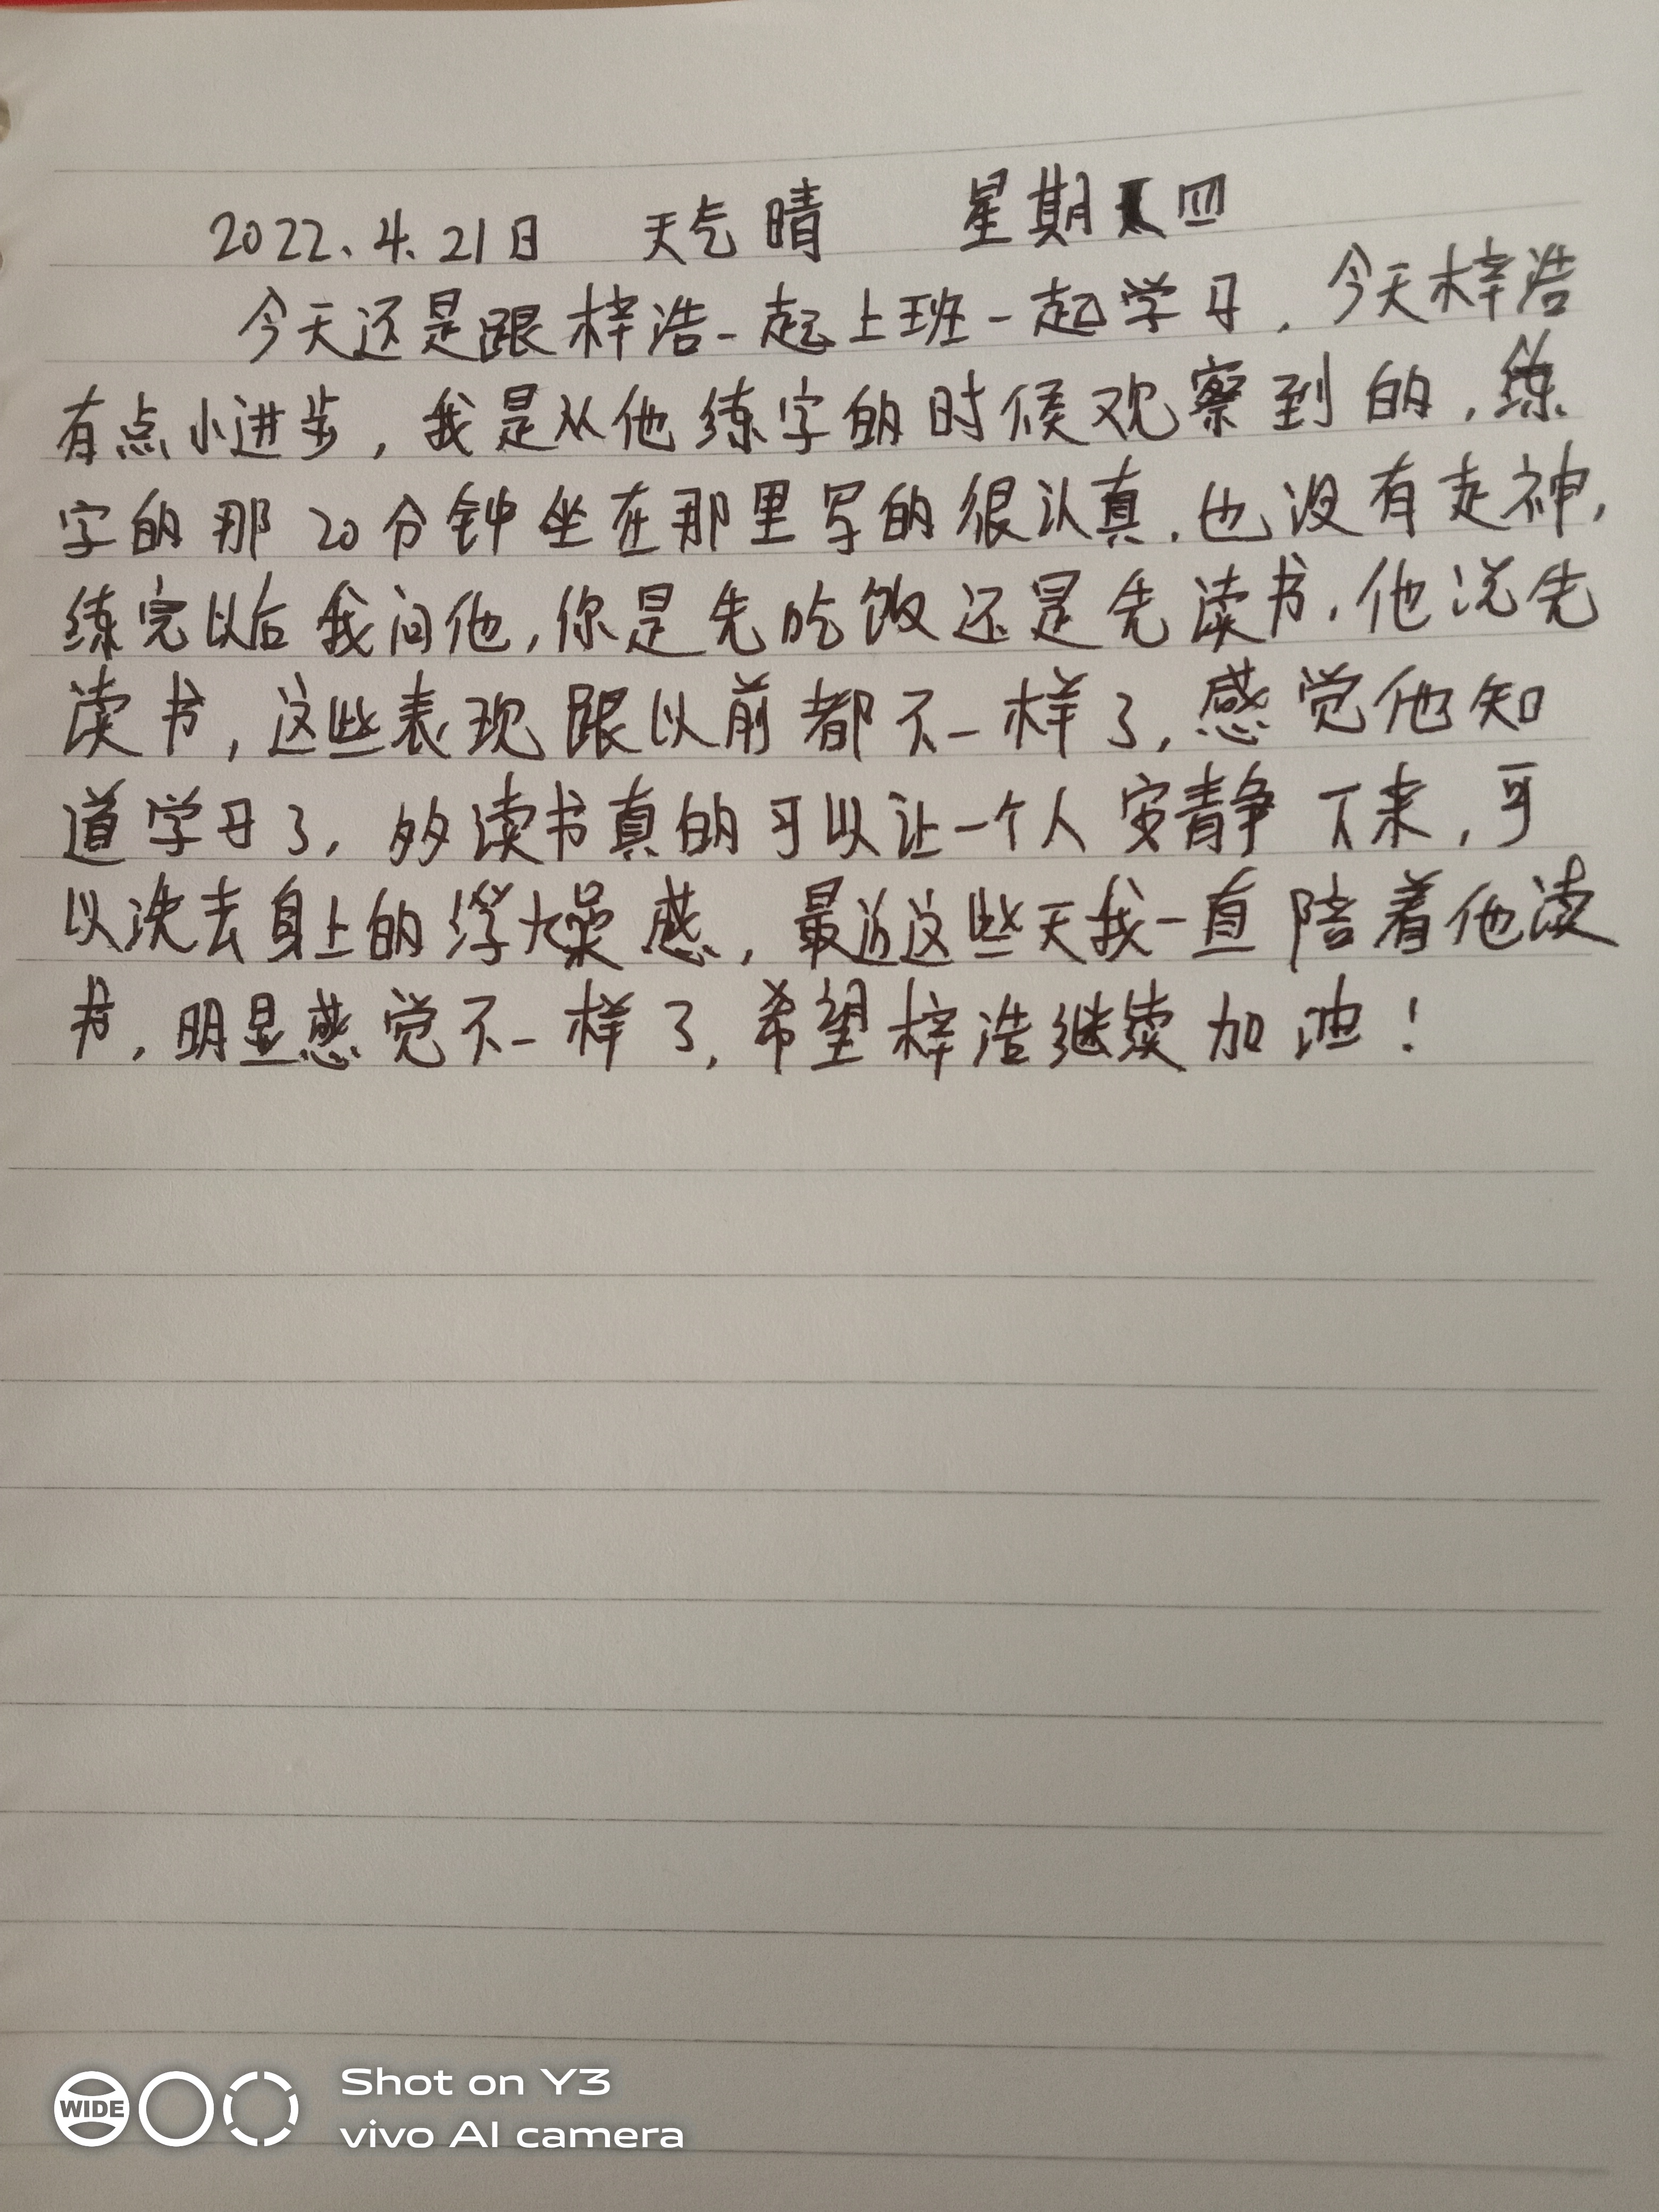 2022.4.21日 天气晴 星期四
今天还是跟梓浩一起上班一起学习.今天梓浩
有点小进步,我是从他练字的时候观察到的,练
字的那20分钟坐在那里写的很认真.也没有走神,
练完以后我问他,你是先吃饭还是先读书.他说先
读书,这些表现跟以前都不一样了,感觉他知
道学习了,多读书真的可以让一个人安静下来,可
以洗去身上的浮燥感,最近这些天我一直陪着他读
书,明显感觉不一样了,希望梓浩继续加油!
WIDE
Shot on Y3
vivo AI camera